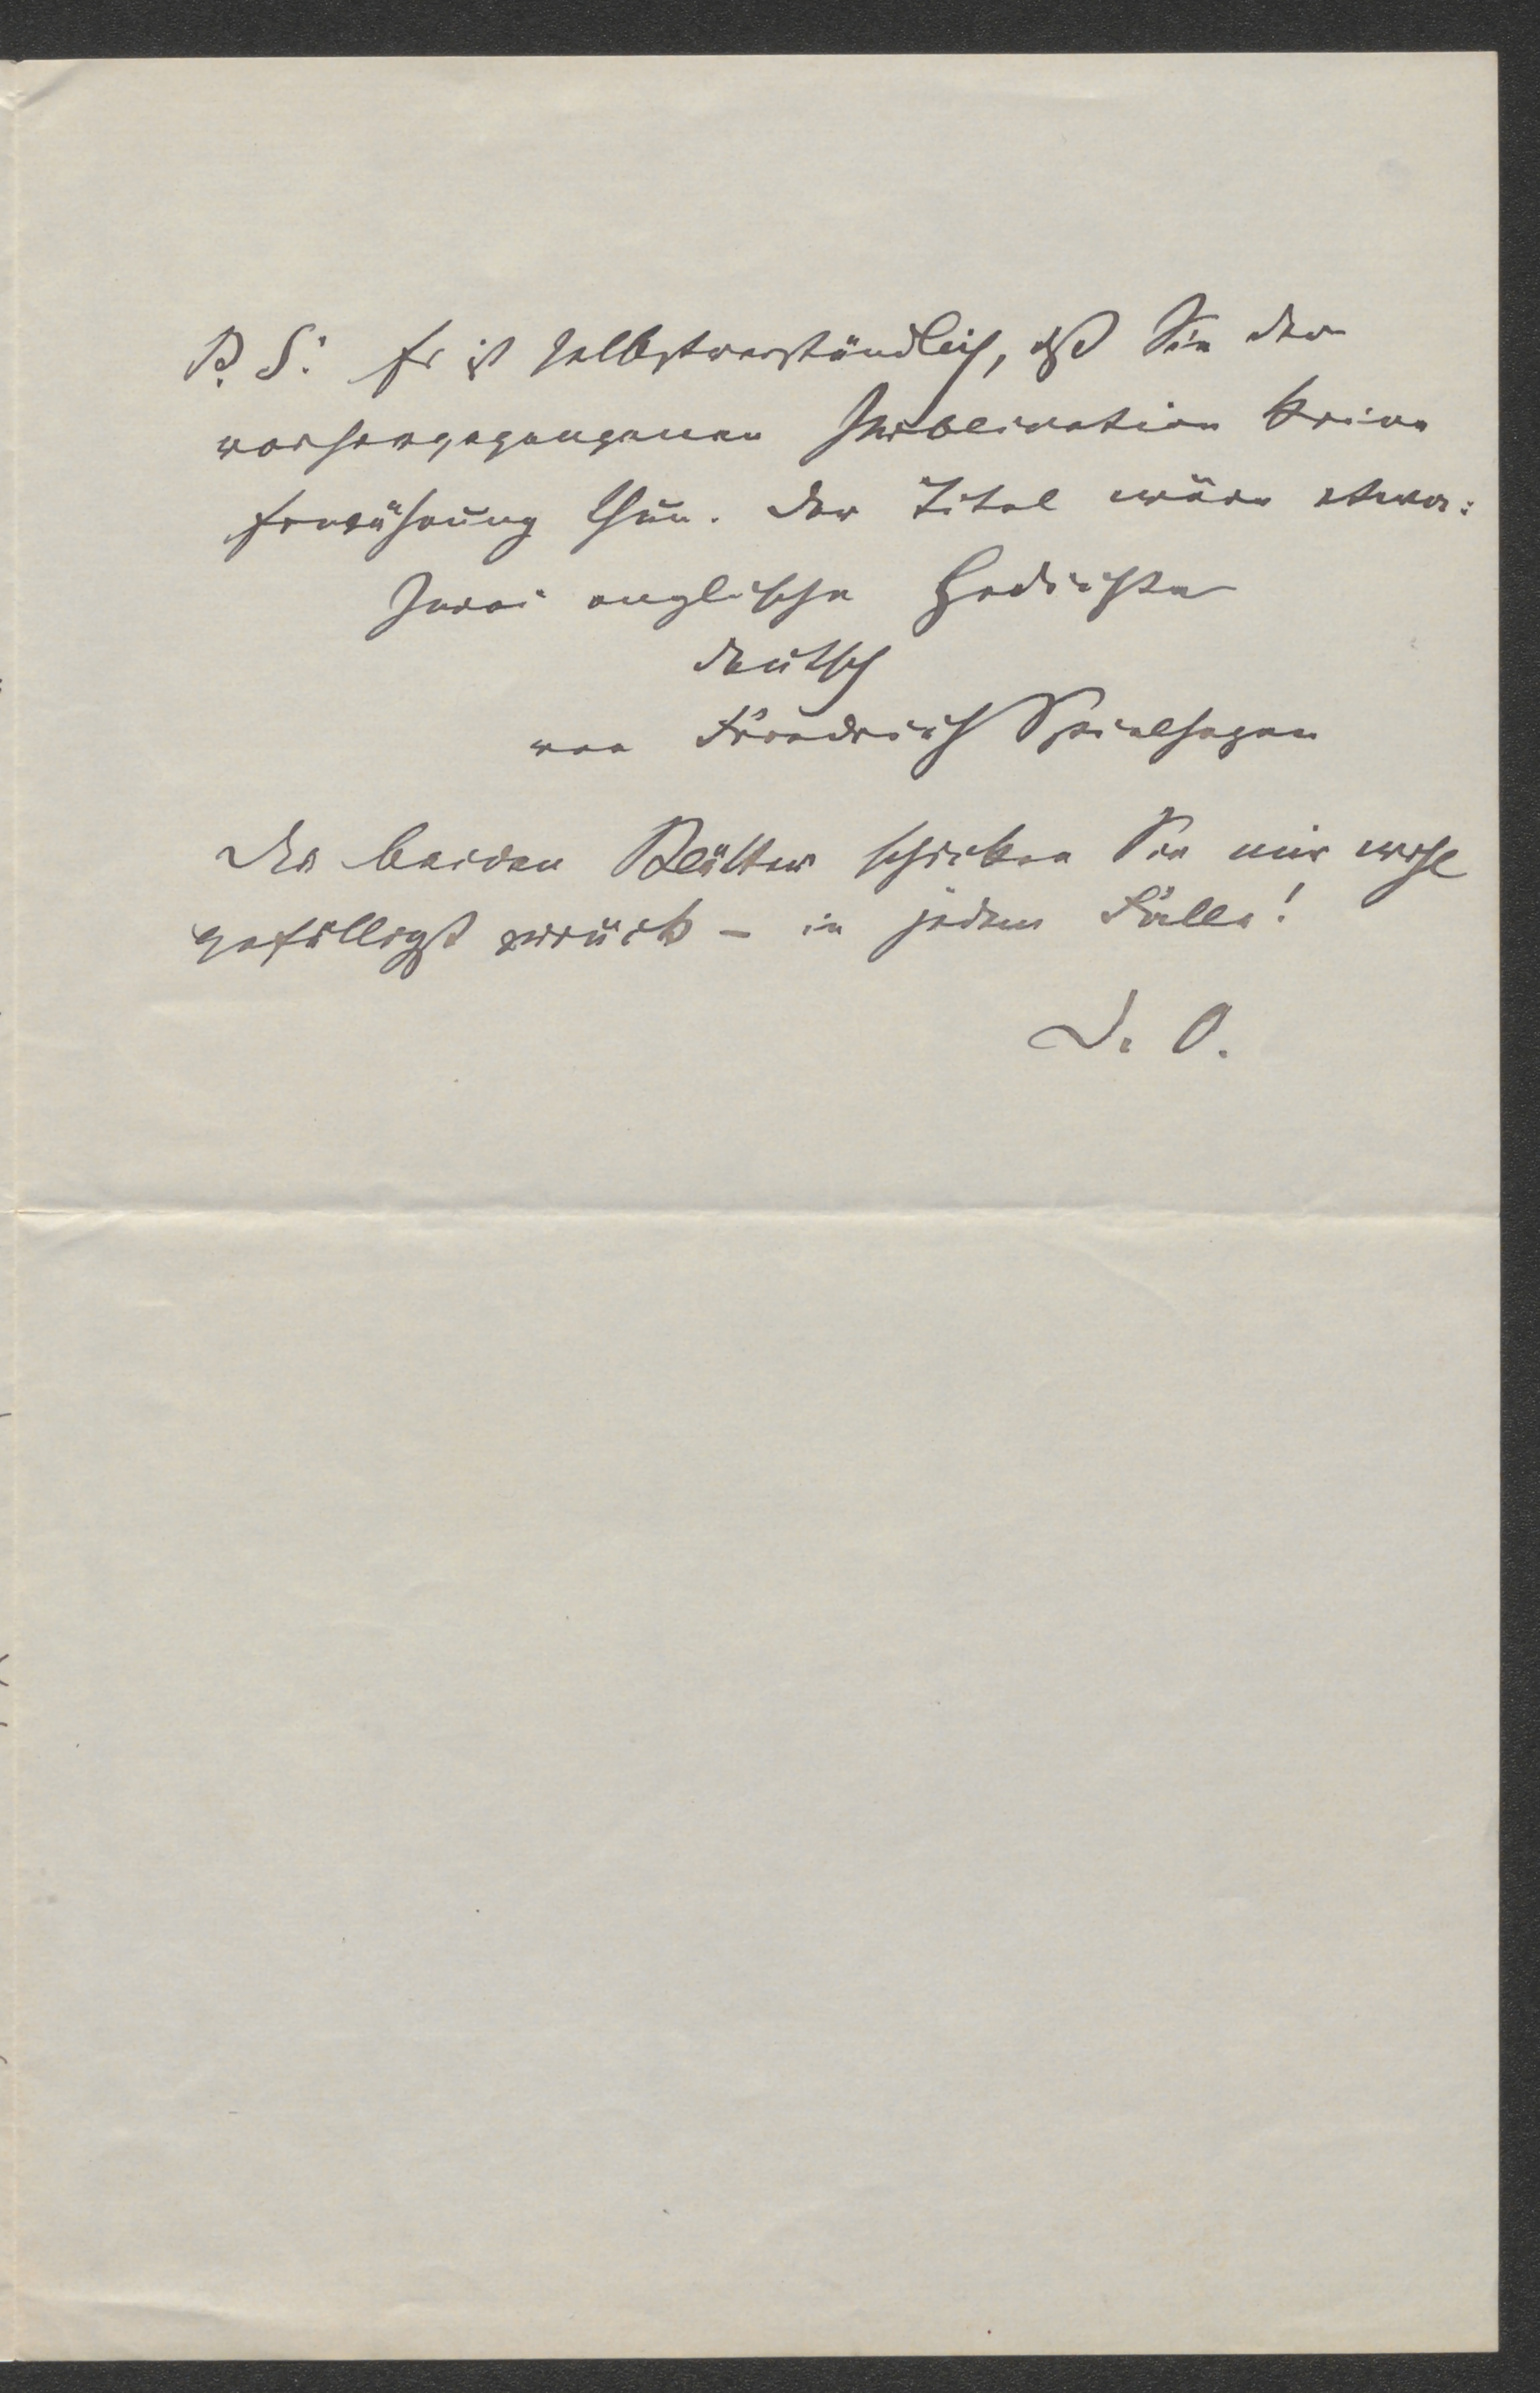 P. S: Es ist selbstverständlich, dß Sie der
vorhergegangenen Publication keine
Erwähnung thun. Der Titel wäre etwa:
Zwei englische Gedichte
deutsch
von Friedrich Spielhagen
Die beiden Blätter schicken Sie mir wohl
gefälligst zurück – in jedem Falle!
D. O.